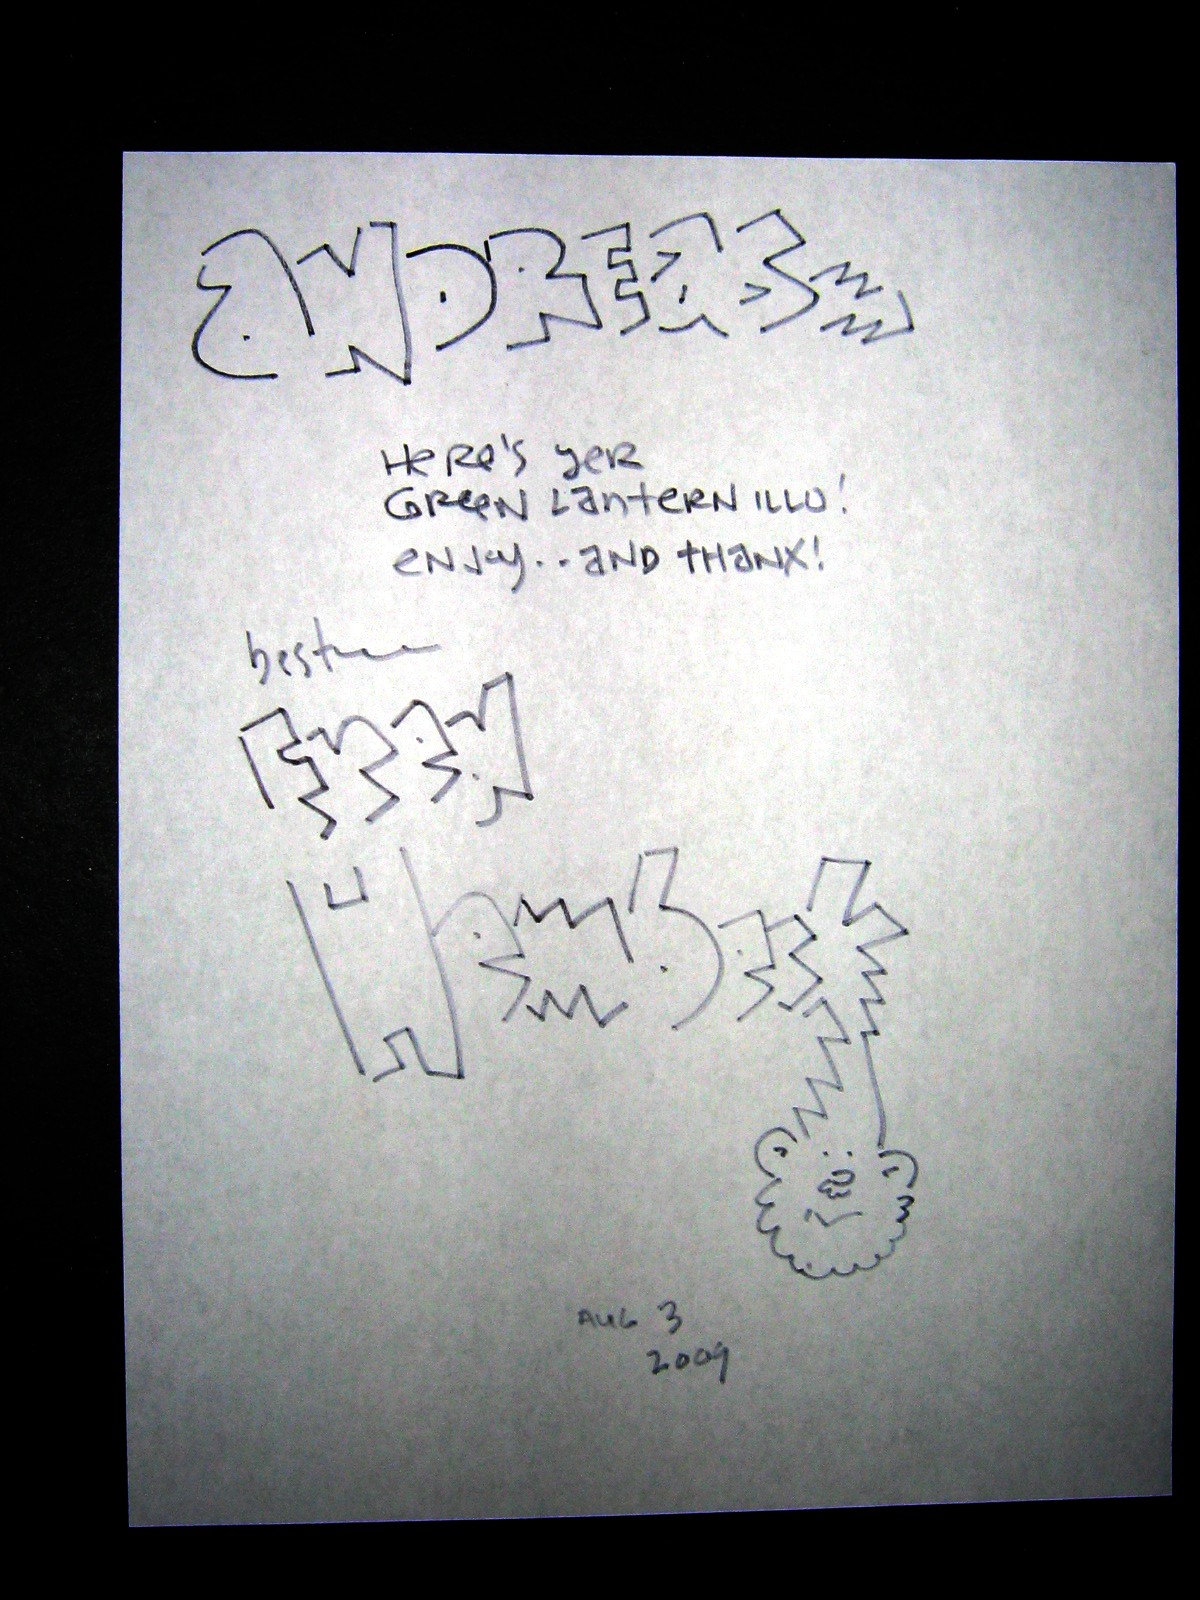 ANDREAS
HERE'S yER
GREEN LANTERN ILLO!
ENJOY.. AND THANX!
best
FRED
HEMBECK
AUG 3
2009